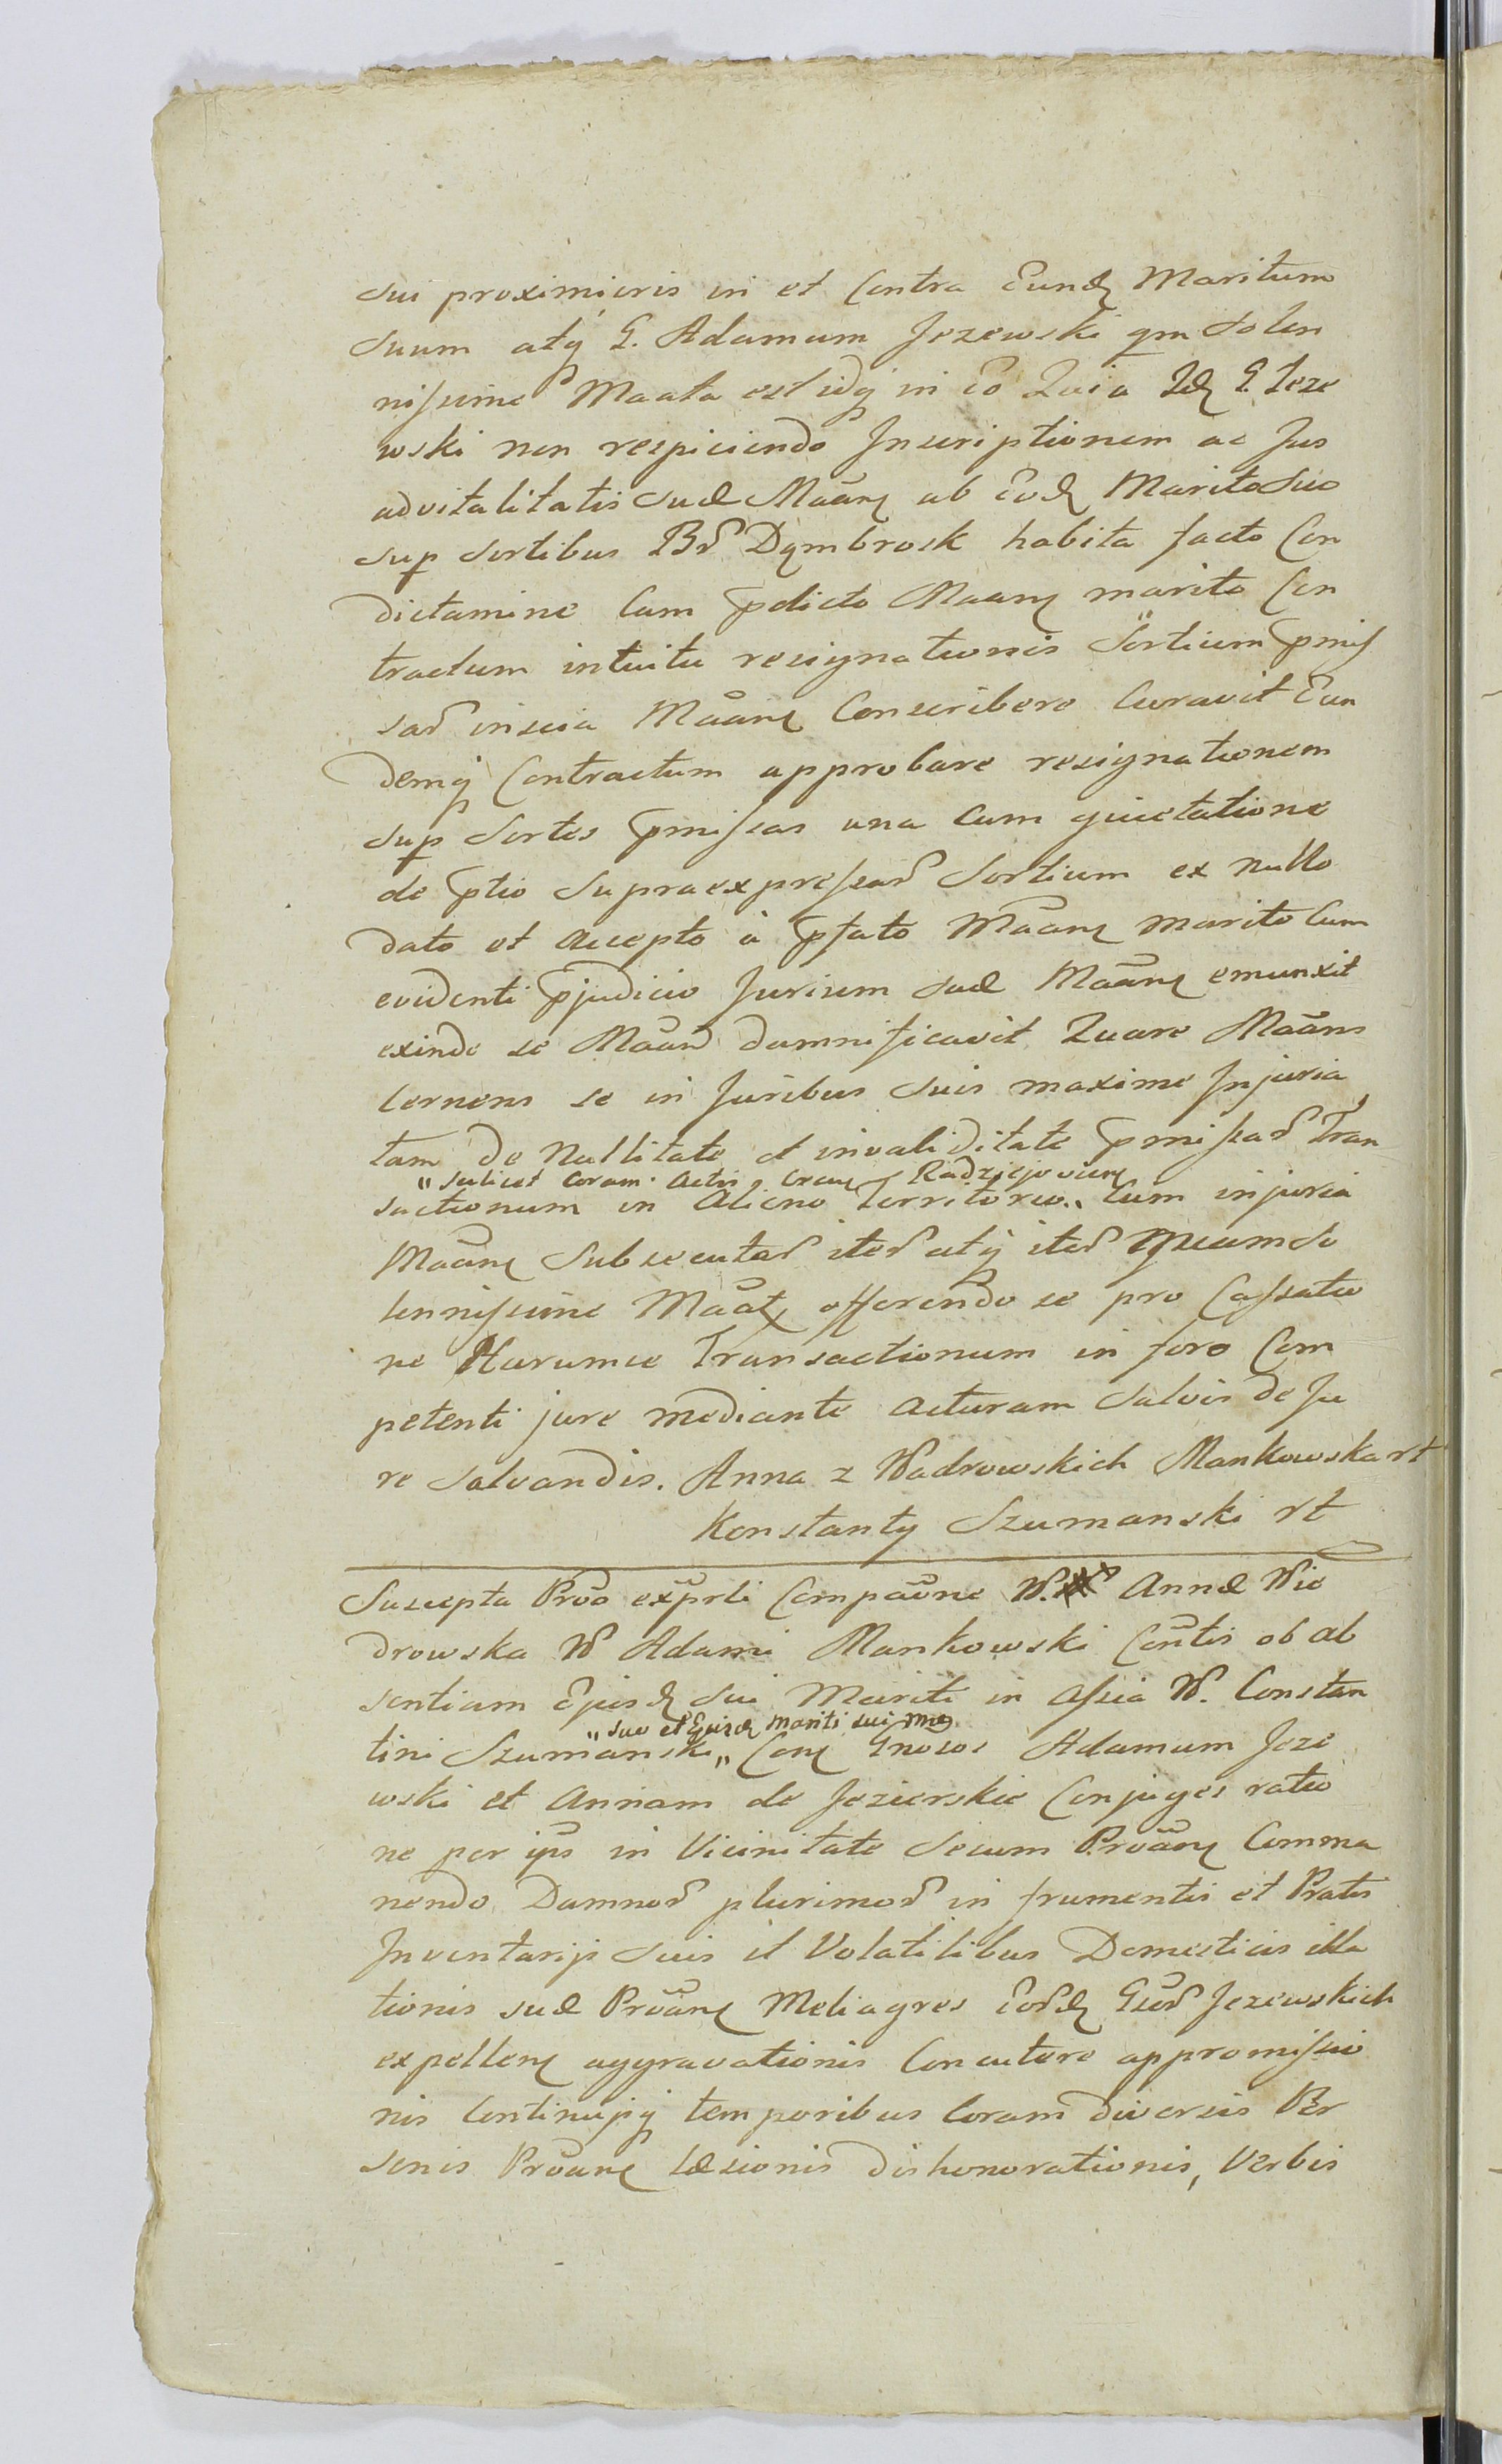 sui proximioris in et Contra Eund Maritum
suum atq G. Adamum Jezewski qm Solen
nissime Maata est idq in eo Quia Id G. Jeze
wski non respiciendo Inscriptionem ac Jus
advitalitatis suæ Maañ ab Eod Marito Suo
sup Sortibus Br Dąmbrosk habita facto Con
dictamine Cum pdicto Maañ marito Con
tractum intuitu resignationis Sortium pmis
sar inscia Maañ Conscribere Curavit Eun
demq Contractum approbare resignationem
sup Sortes pmissas una Cum quietatione
de ptio Supraexpressar Sortium ex nullo
dato et Accepto à pfato Maañ marito Cum
evidenti pjudicio Jurium suæ Maañ emunxit
exinde se Maañ damnificavit Quare Maãns
Cernens se in Juribus Suis maxime Injuria
tam de Nullitate et invaliditate pmissar Tran
"scilicet Coram Actis Cren Radziejovien
suctionum in Alieno Territorio" Cum injuria
Maañ Subsecutar iter atq iter So
lennissime Maat offerendo se pro Cassatio
ne Harumce Transactionum in foro Com
petenti jure mediante Acturam Salvis de Ju
re Salvandis. Anna z Wadrowskich Mankowska rt
Konstanty Szumanski rt
Suscepta Proõ exprti Compaõne W. Annæ Wie
drowska W Adami Mankowski Contis ob ab
sentiam Ejusd Sui Mariti in Assia W. Constan
"suo et Ejusd Mariti sui
tini Szumanski" Con Gnosos Adamum Jeze
wski et Annam de Jezierskie Conjuges ratio
ne per ips in Vicinitate Secum Proañ Comma
nendo Damnor plurimor in frumentis et Pratis
Inventarijs Suis et Volatilibus Domesticis illa
tionis suæ Proañ Meliagres Eord Gsor Jezewskich
expellen aggravationis Concutere appromissio
nis Continuisq temporibus Coram diversis Per
sonis Proañ Læsionis dishonorationis, Verbis